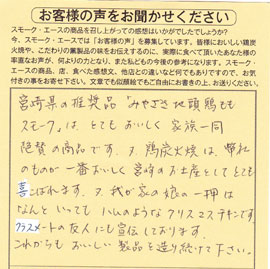 お客様の声をお聞かせください
スモーク・エースの商品を召し上がっての感想はいかがでしたでしょうか?
今、スモーク・エースでは「お客様の声」を募集しています。皆様においしい鶏炭
火焼や、こだわりの燻製品の味をお伝えするのに、実際に食べて頂いたあなた様の
率直なお声が、何よりの力となり、また私どもの今後の参考になります。スモーク・
エースの商品、店、食べた感想文、他店との違いなど何でもありですので、お気
付きの事を寄せ下さい。文章でも似顔絵でもご自由にお書きの上、お送りください。
宮崎県の推奨品「みやざき地頭鶏もも
スモーク」は とても おいしく 家族一同
絶賛の商品です。又、鶏炭火焼は、弊社
のものが 一番おいしく 宮崎のお土産として とても
喜こばれます。又、我が家の娘の一押は
なんと いっても ハムのような クリスマスチキンです。
クラスメートの友人にも宣伝しております。
これからも おいしい 製品を造り続けて下さい。